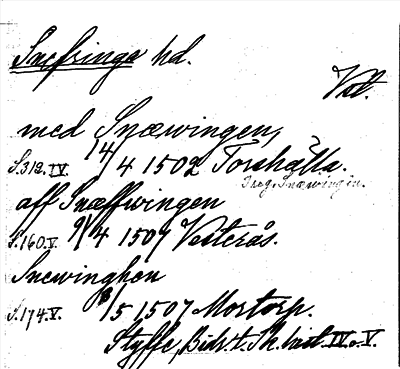 Snefringe hd.
Vstl.
med Snæwingen,
S.312. IV. 14/4 1502 Torshälla.
Snæwingin.
aff Snæffwingen
S.160. V. 9/4 1507 Vesterås.
Snewinghen
S.174. V. 8/5 1507 Mortorp.
Styffe, Bidr. t. Sk. hist. IV o. V.